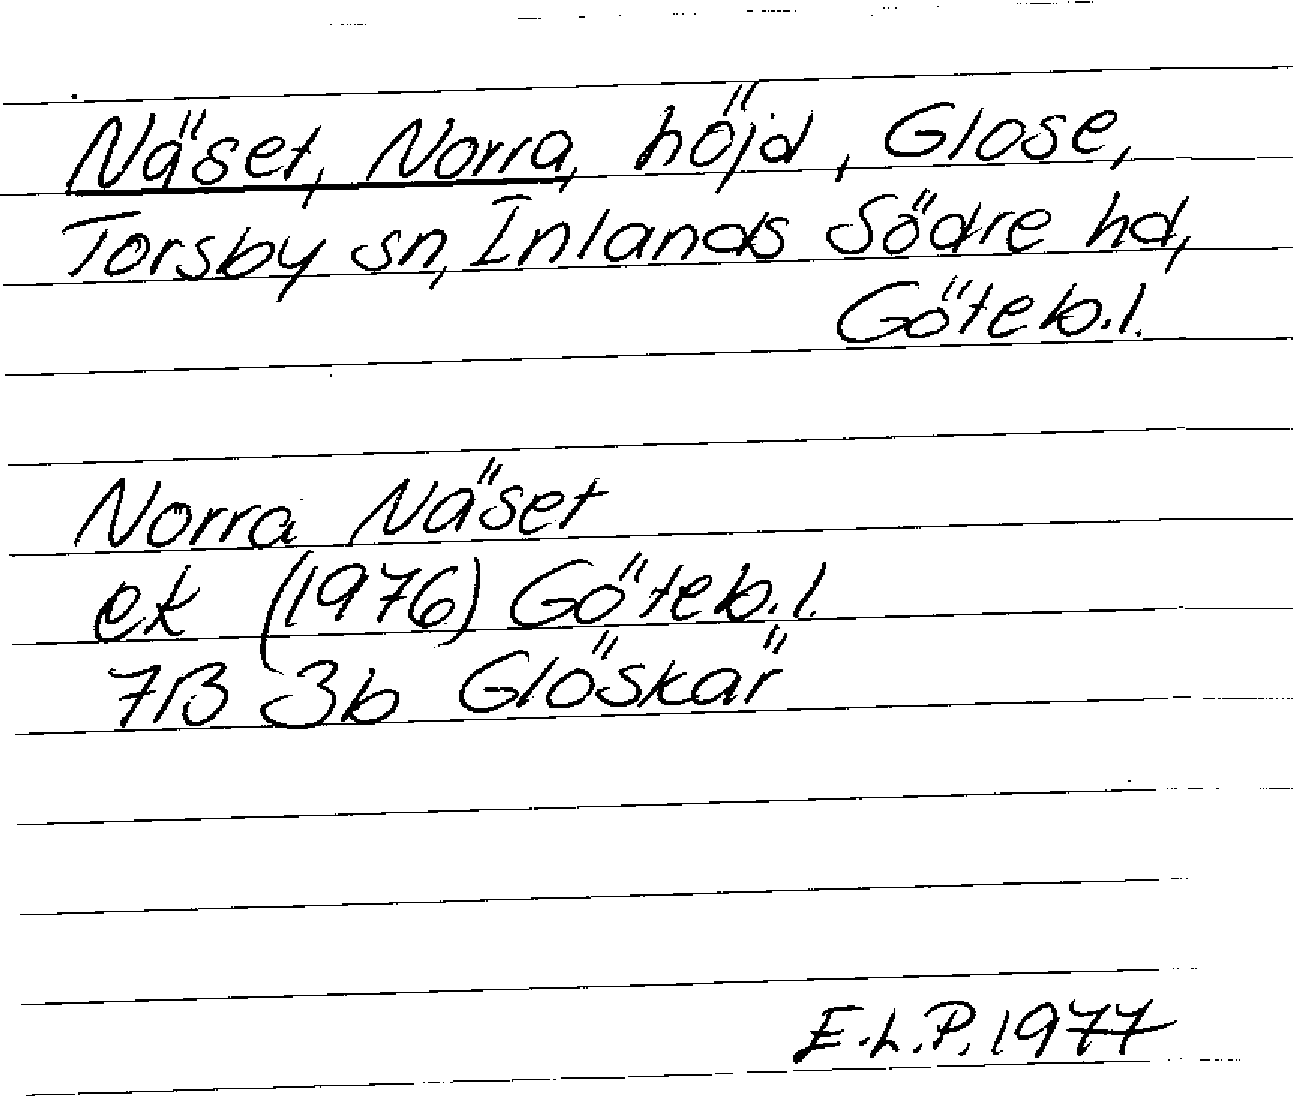 Näset, Norra, höjd, Glose,
Torsby sn, Inlands Södre hd,
Göteb.l.
Norra Näset
ek (1976) Göteb.l.
7B 3b Glöskär
E.L.P. 1977